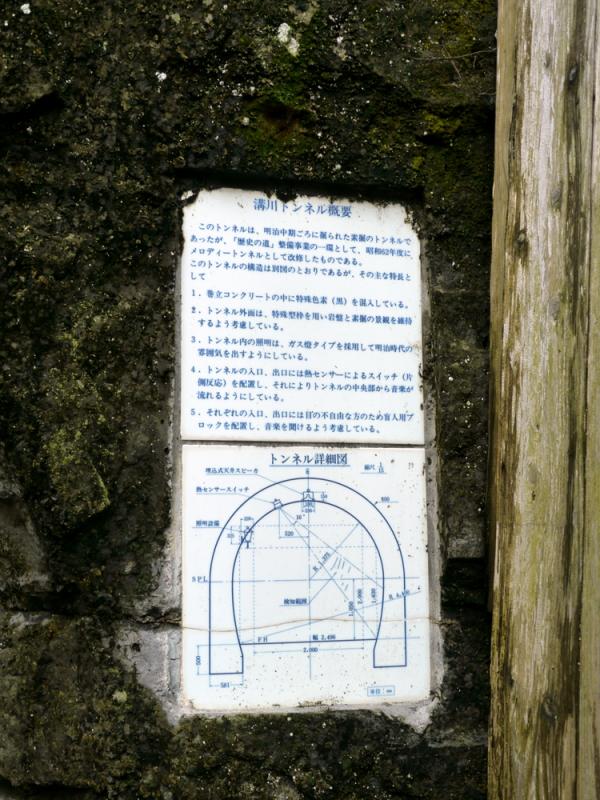 溝川トンネル概要
このトンネルは、明治中期ごろに掘られた素掘のトンネルで
あったが、「歴史の道」整備事業の一環として、昭和62年度に
メロディートンネルとして改修したものである。
このトンネルの構造は別図のとおりであるが、その主な特長と
して
1．巻立コンクリートの中に特殊色素（黒）を混入している。
2．トンネル外面は、特殊型枠を用い岩盤と素掘の景観を維持
するよう考慮している。
3．トンネル内の照明は、ガス燈タイプを採用して明治時代の
雰囲気を出すようにしている。
4．トンネルの入口、出口には熱センサーによるスイッチ（片
側反応）を配置し、それによりトンネルの中央部から音楽が
流れるようにしている。
5．それぞれの入口、出口には目の不自由な方のため盲人用ブ
ロックを配置し、音楽を聞けるよう考慮している。
トンネル詳細図
縮尺
埋込式天井スピーカ
熱センサースイッチ
400
照明設備
520
SPL
検知範囲
2,000
1,420
FH
幅 2,496
2,000
500
581
単位 mm